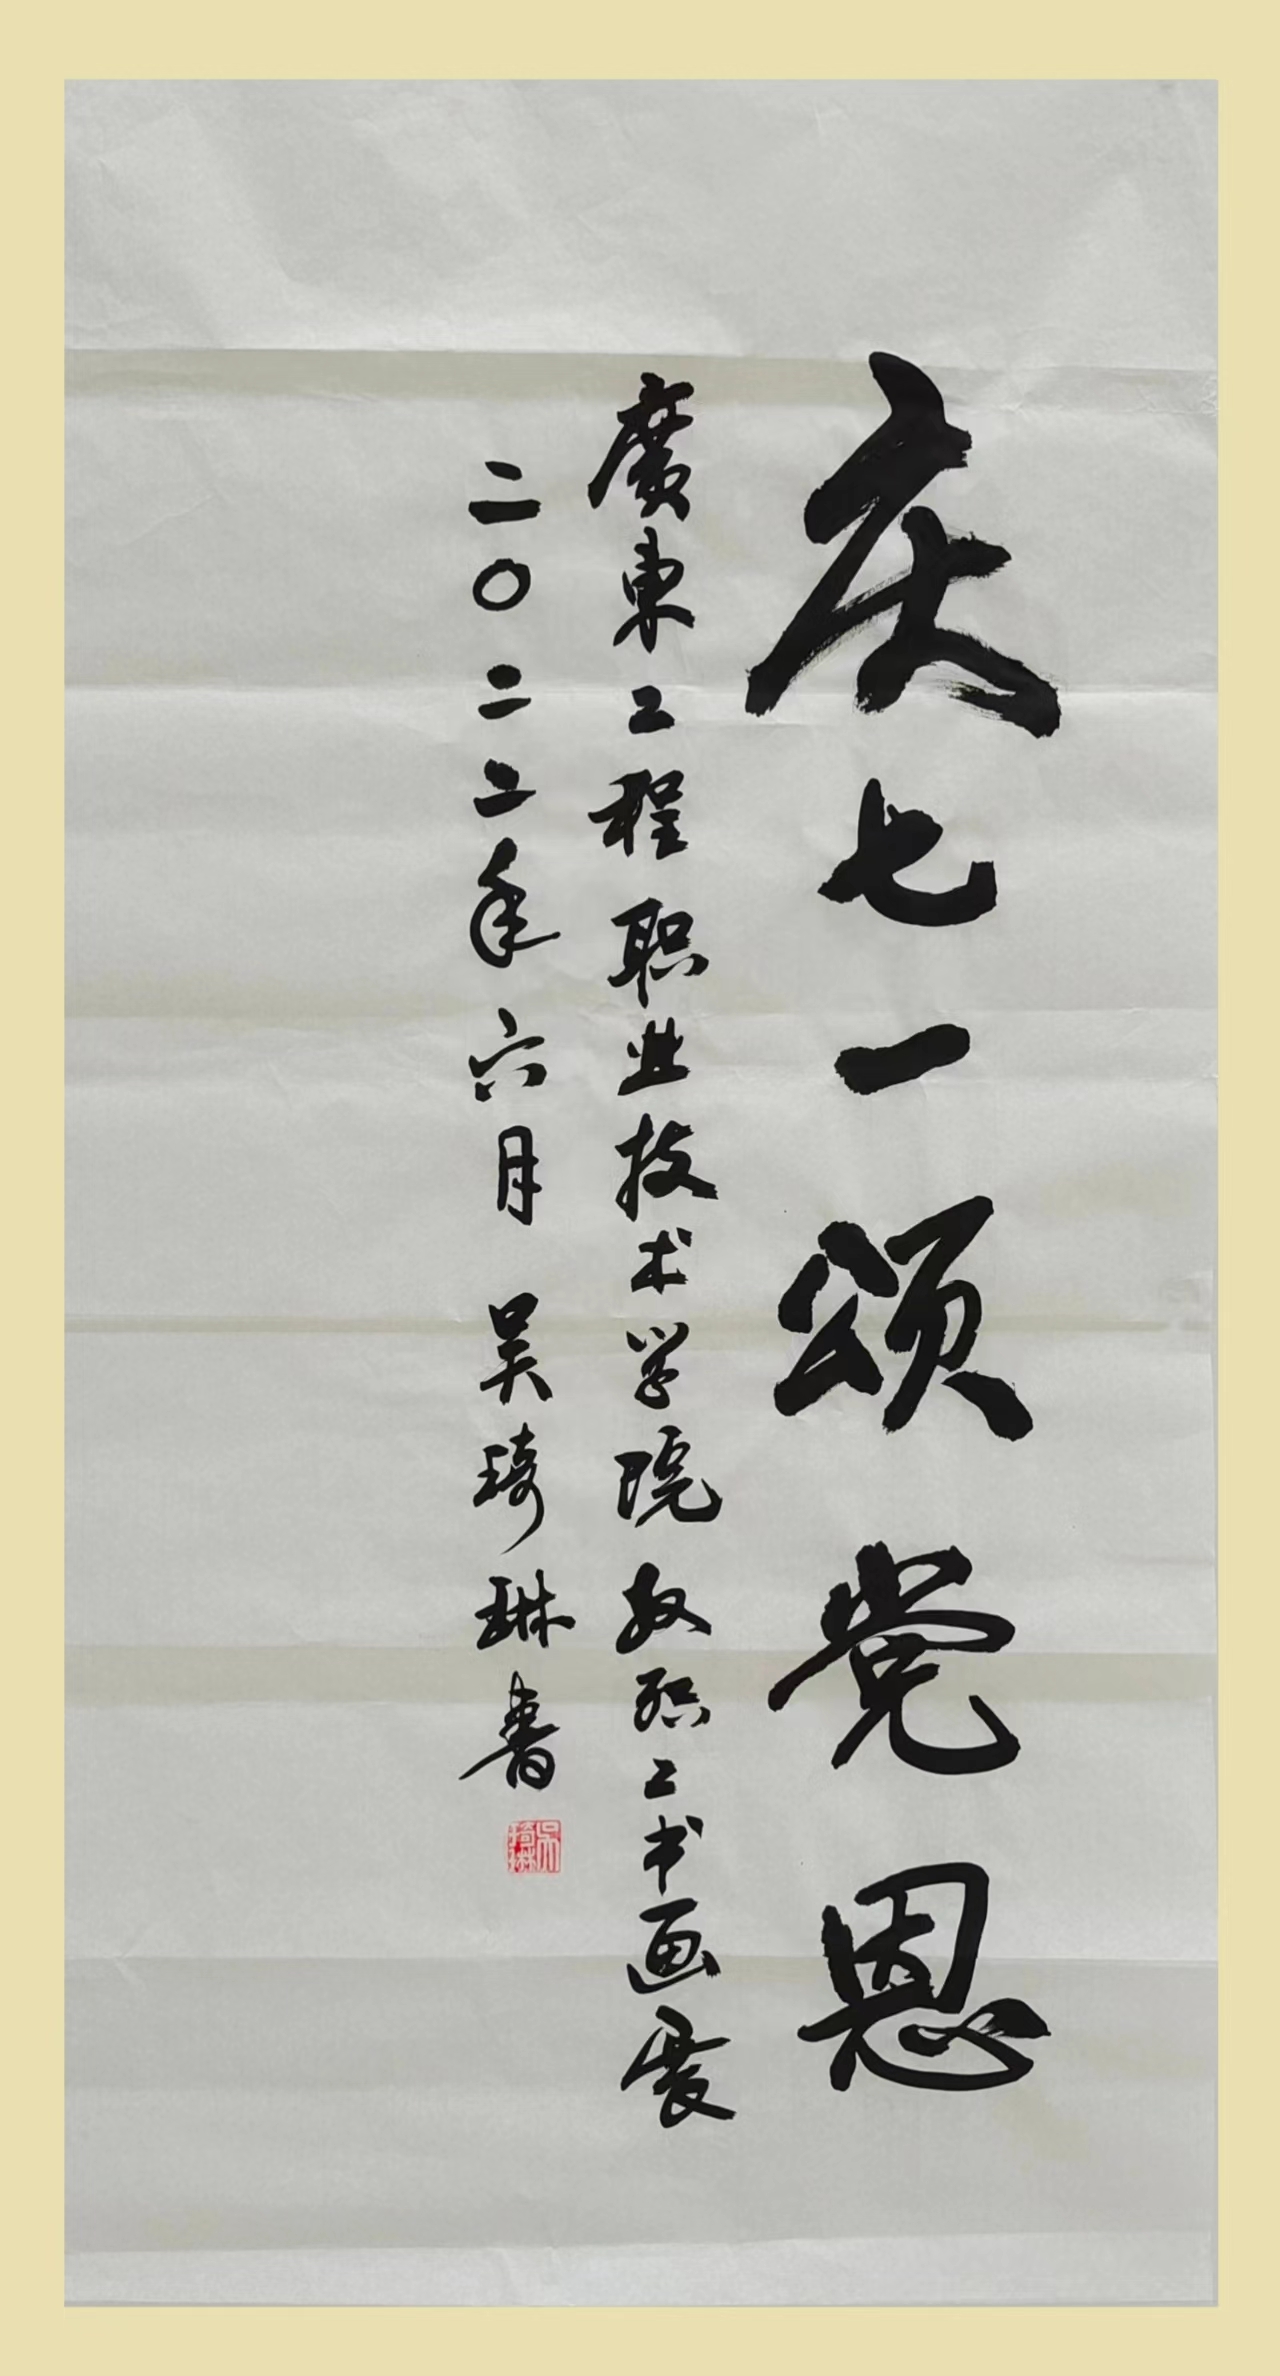 庆七一颂党恩
廣東工程职业技术学院教职工书画展
二〇二二年六月 吴琦琳書
吴琦琳